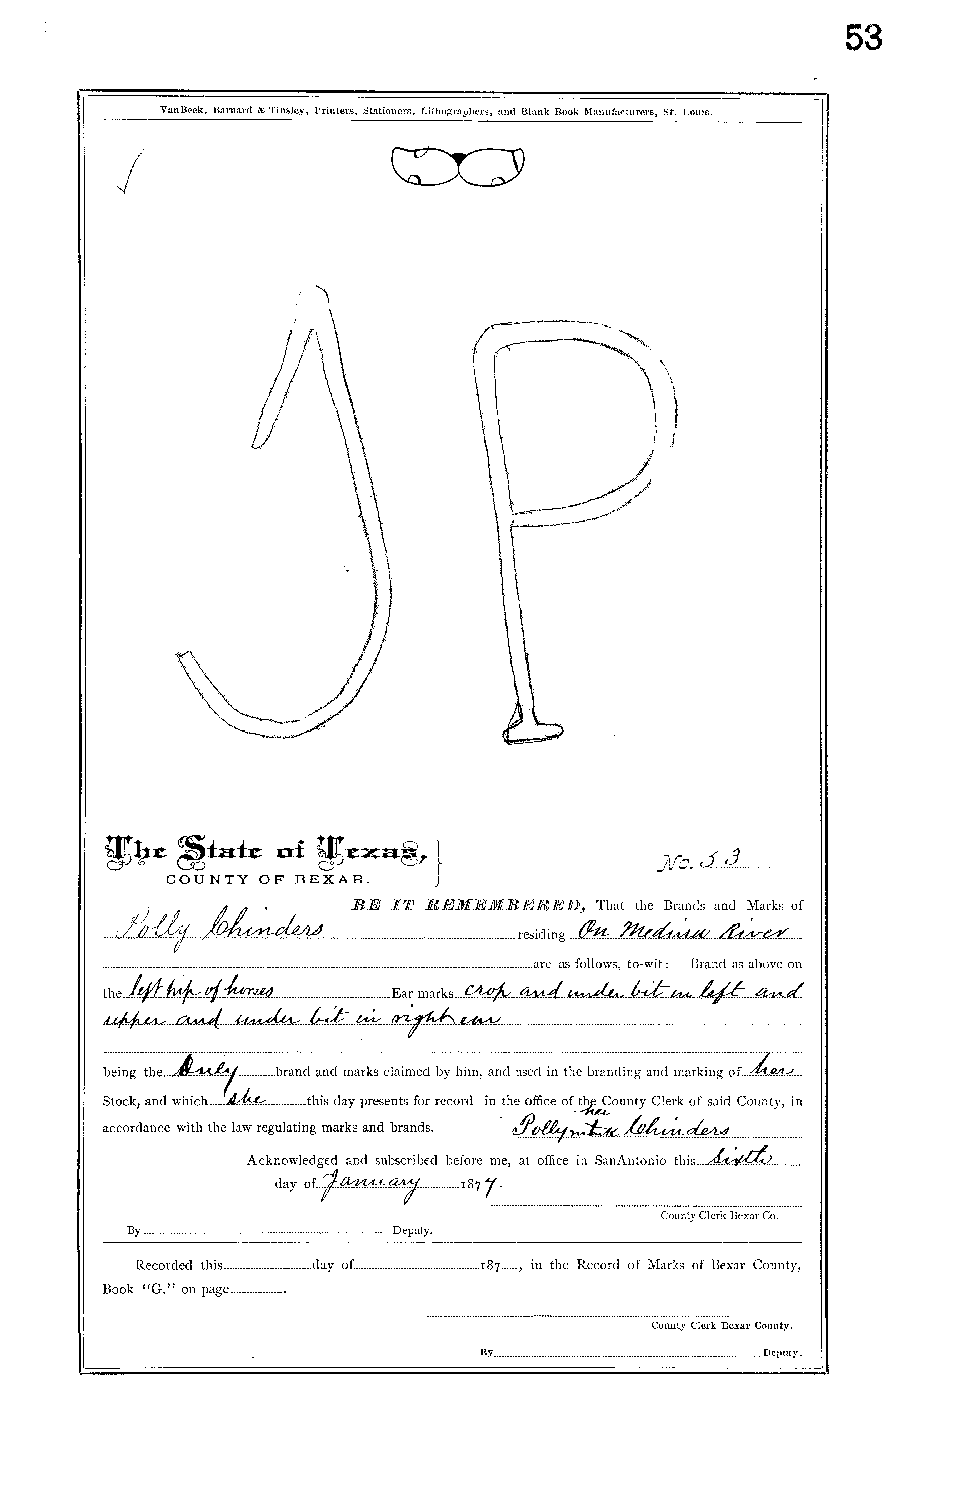 53
VanBeek, Barnard & Tinsley, Printers, Stationers, Lithographers, and Blank Book Manufacturers, St. Louis.
J P
The State of Texas,
COUNTY OF BEXAR.
No. 53
BE IT REMEMBERED, That the Brands and Marks of
Polly Chinders residing On Medina River
are as follows, to-wit: Brand as above on
the left hip of horses Ear marks crop and under bit in left and
upper and under bit in right ear
being the Only brand and marks claimed by him, and used in the branding and marking of her
Stock, and which she this day presents for record in the office of the County Clerk of said County, in
her
accordance with the law regulating marks and brands. Polly x Chinders
Acknowledged and subscribed before me, at office in San Antonio this Sixth
day of January 1877.
County Clerk Bexar Co.
By Deputy.
Recorded this day of 187 , in the Record of Marks of Bexar County,
Book "G," on page .
County Clerk Bexar County.
By Deputy.